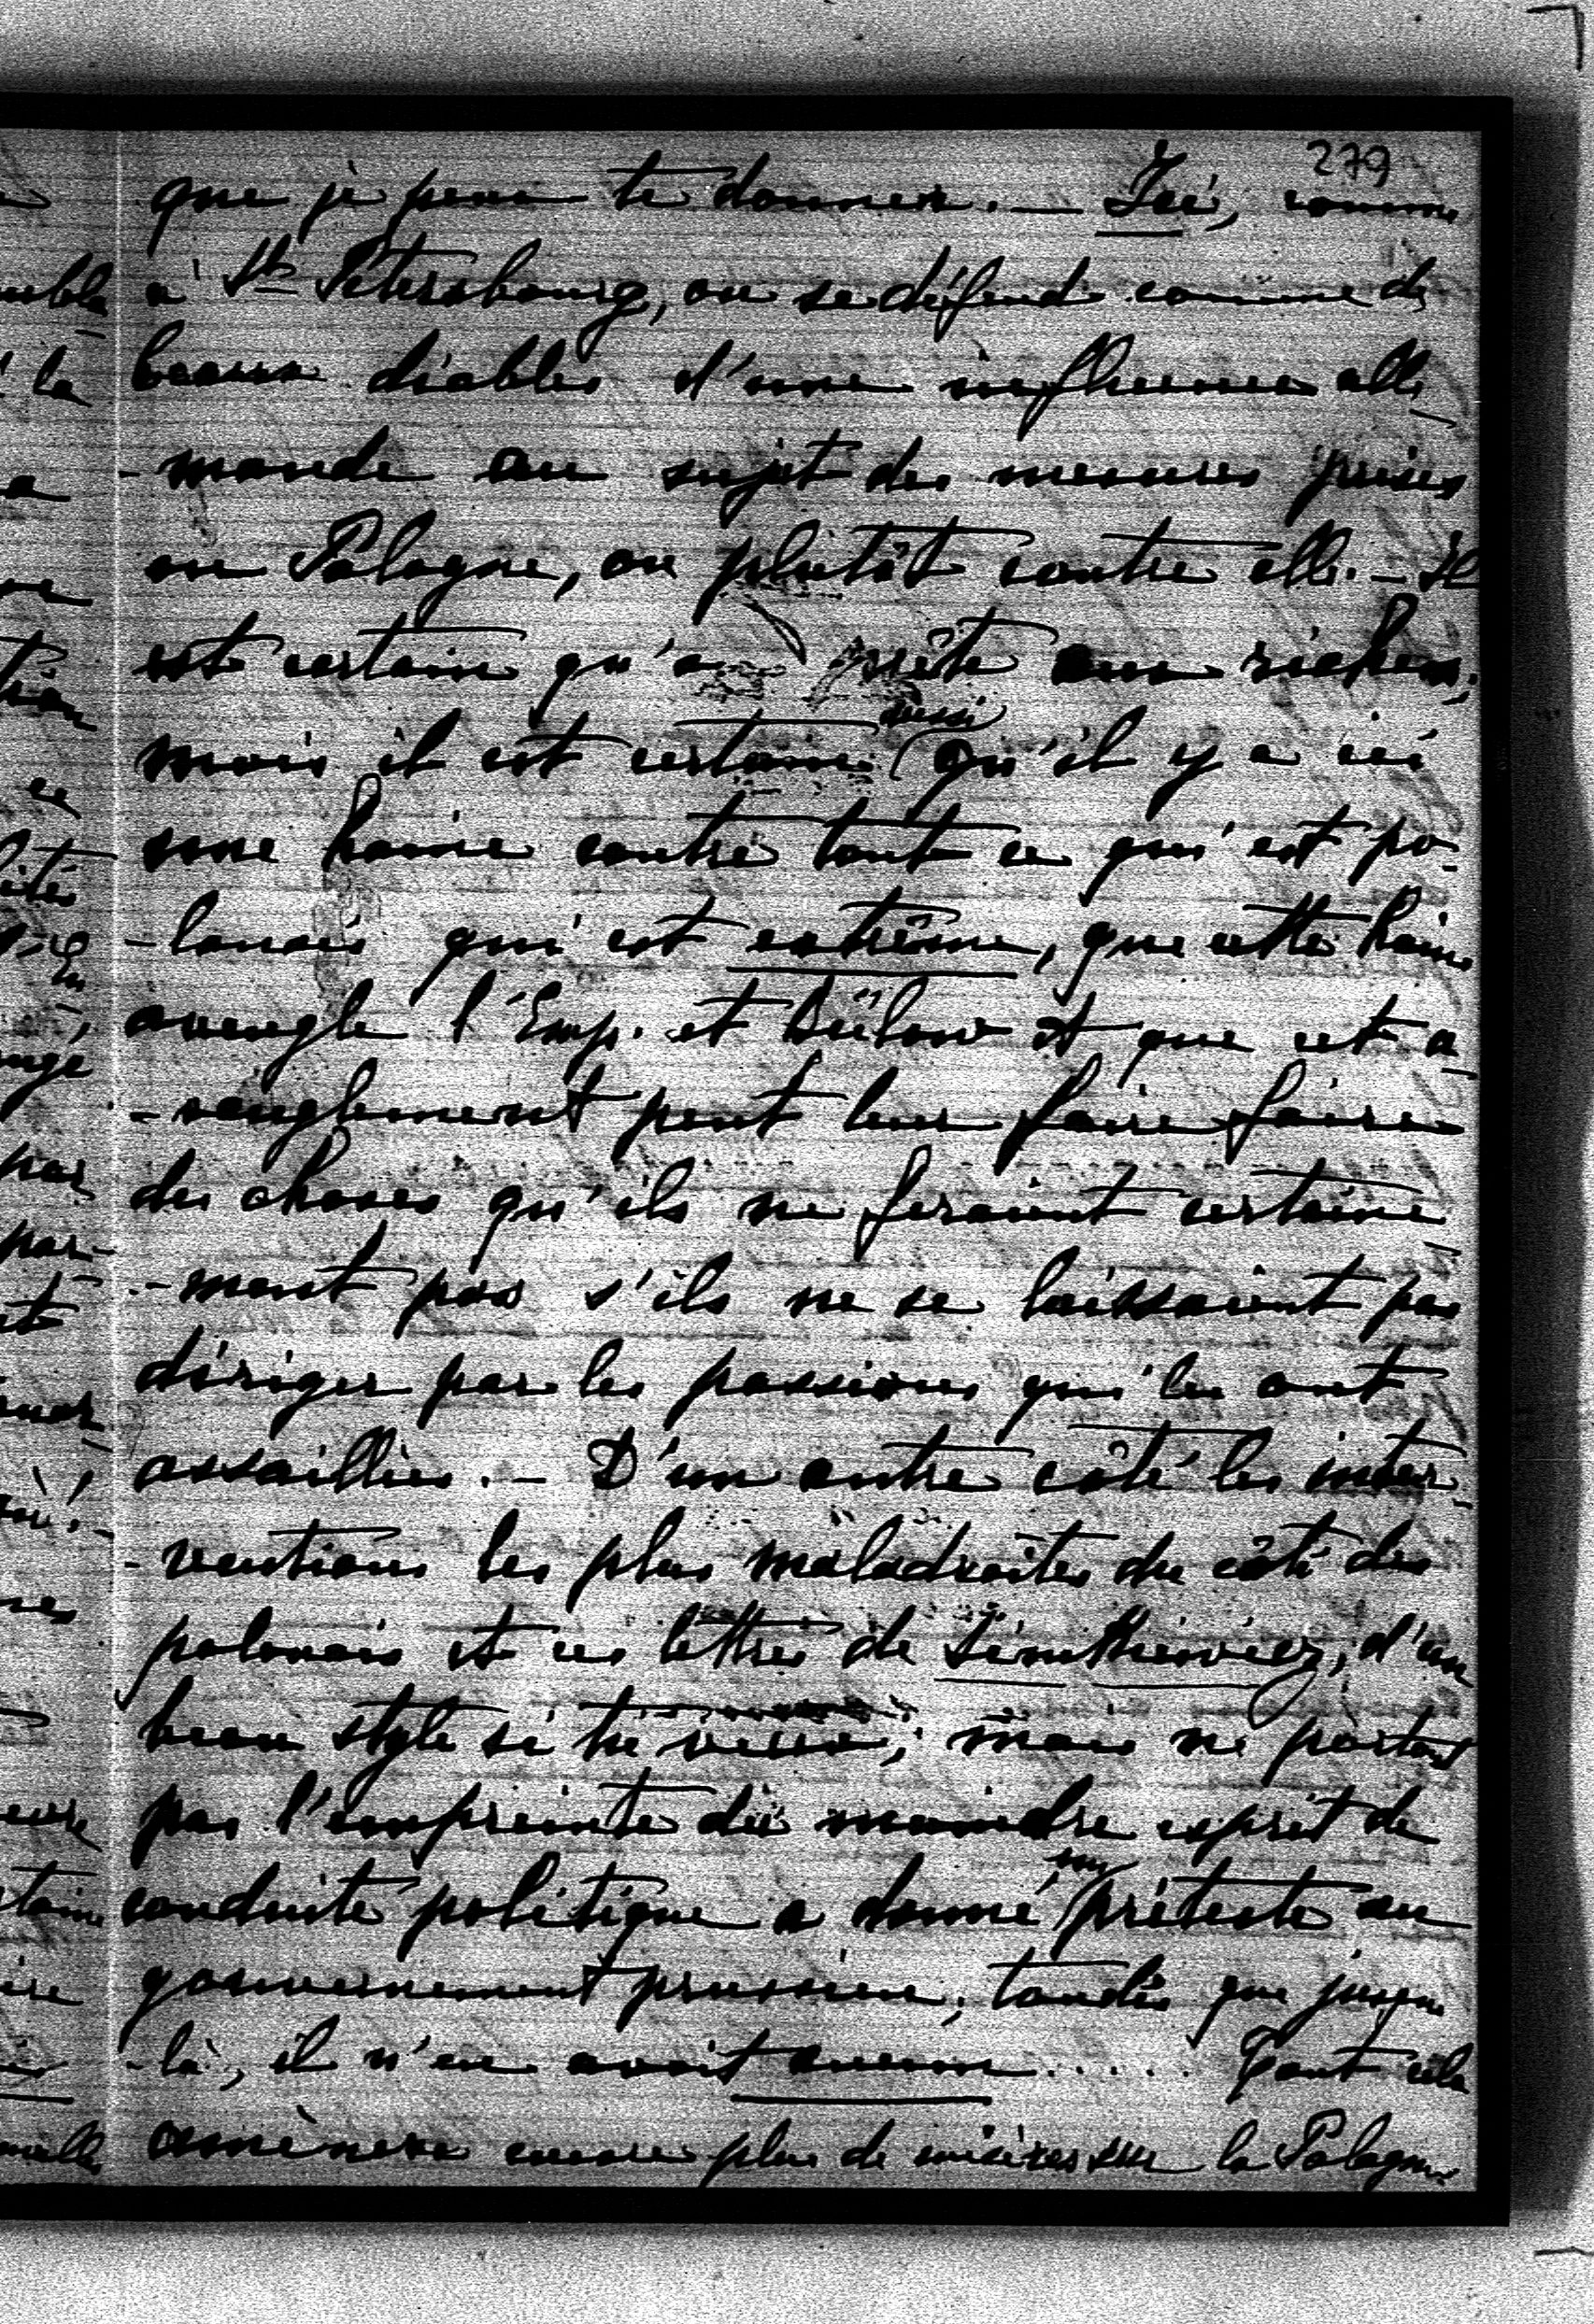 279
que je peux te donner. — Ici, comme
à St Petersbourg, on se défend comme de
beaux diables d'une influence alle
-mande au sujet des mesures prises
en Pologne, ou plutôt contre elle. — Il
est certain qu'on prête aux riches;
mais il est certain aussi qu'il y a ici
une haine contre tout ce qui est po-
-lonais qui est extrême, que cette haine
aveugle l'Emp. et Bülow et que cet a-
-veuglement peut leur faire faire
des choses qu'ils ne feraient certaine
-ment pas s'ils ne se laissaient pas
diriger par les passions qui les ont
assaillies. — D'un autre côté les inter-
-ventions les plus maladroites du côté des
polonais et ces lettres de Sienkiewicz, d'un
beau style si tu veux, mais ne portant
pas l'empreinte du moindre esprit de
conduite politique a donné un prétexte au
gouvernement prussien, tandis que jusque
-là, il n'en avait aucun..... Tout cela
amènera encore plus de misères sur la Pologne